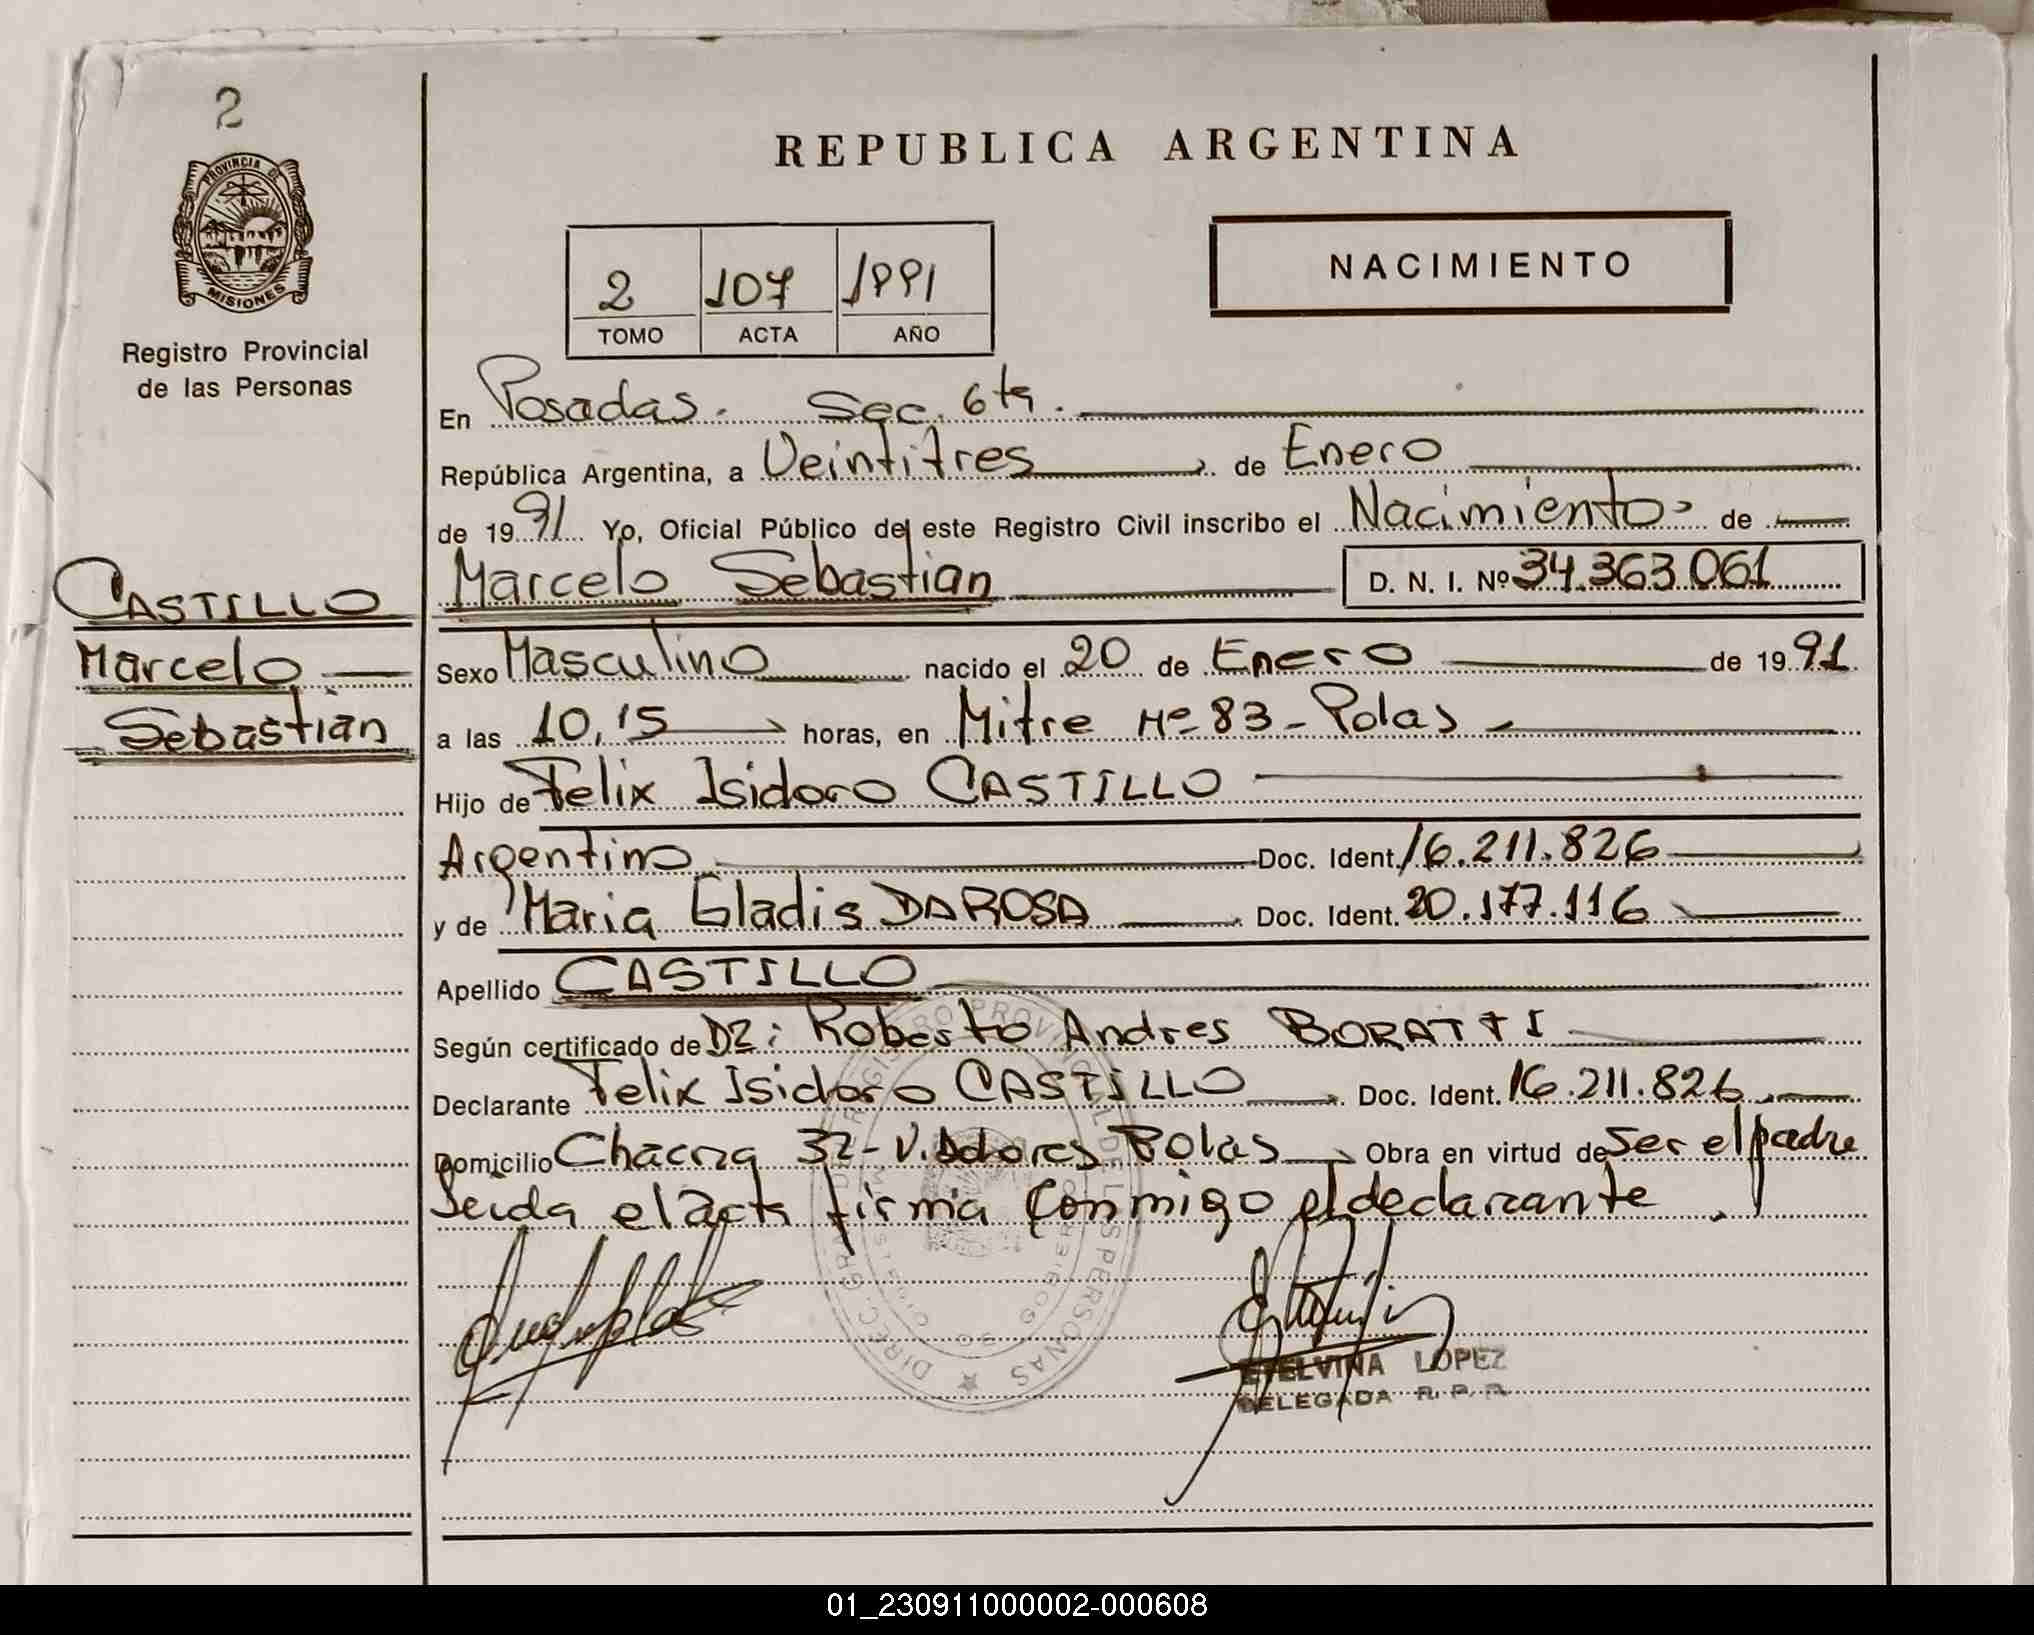 2
PROVINCIA DE
MISIONES
Registro Provincial
de las Personas
CASTILLO
Marcelo
Sebastián
REPUBLICA ARGENTINA
2 107 1991
TOMO ACTA AÑO
NACIMIENTO
En Posadas. Sec. 6ta.
República Argentina, a Veintitres de Enero
de 1991 Yo, Oficial Público del este Registro Civil inscribo el Nacimiento de
Marcelo Sebastián D. N. I. Nº 34.363.061
Sexo Masculino nacido el 20 de Enero de 1991
a las 10,15 horas, en Mitre Nº 83 - Pdas
Hijo de Felix Isidoro CASTILLO
Argentino Doc. Ident. 16.211.826
y de Maria Gladis DA ROSA Doc. Ident. 20.177.116
Apellido CASTILLO
Según certificado de DR: Roberto Andres BORATTI
Declarante Felix Isidoro CASTILLO Doc. Ident. 16.211.826
Domicilio Chacra 32 - V. Dolores Pdas Obra en virtud de ser el padre
Leida el acta firma conmigo el declarante.
ETELVINA LOPEZ
DELEGADA R. P. P.
01_230911000002-000608